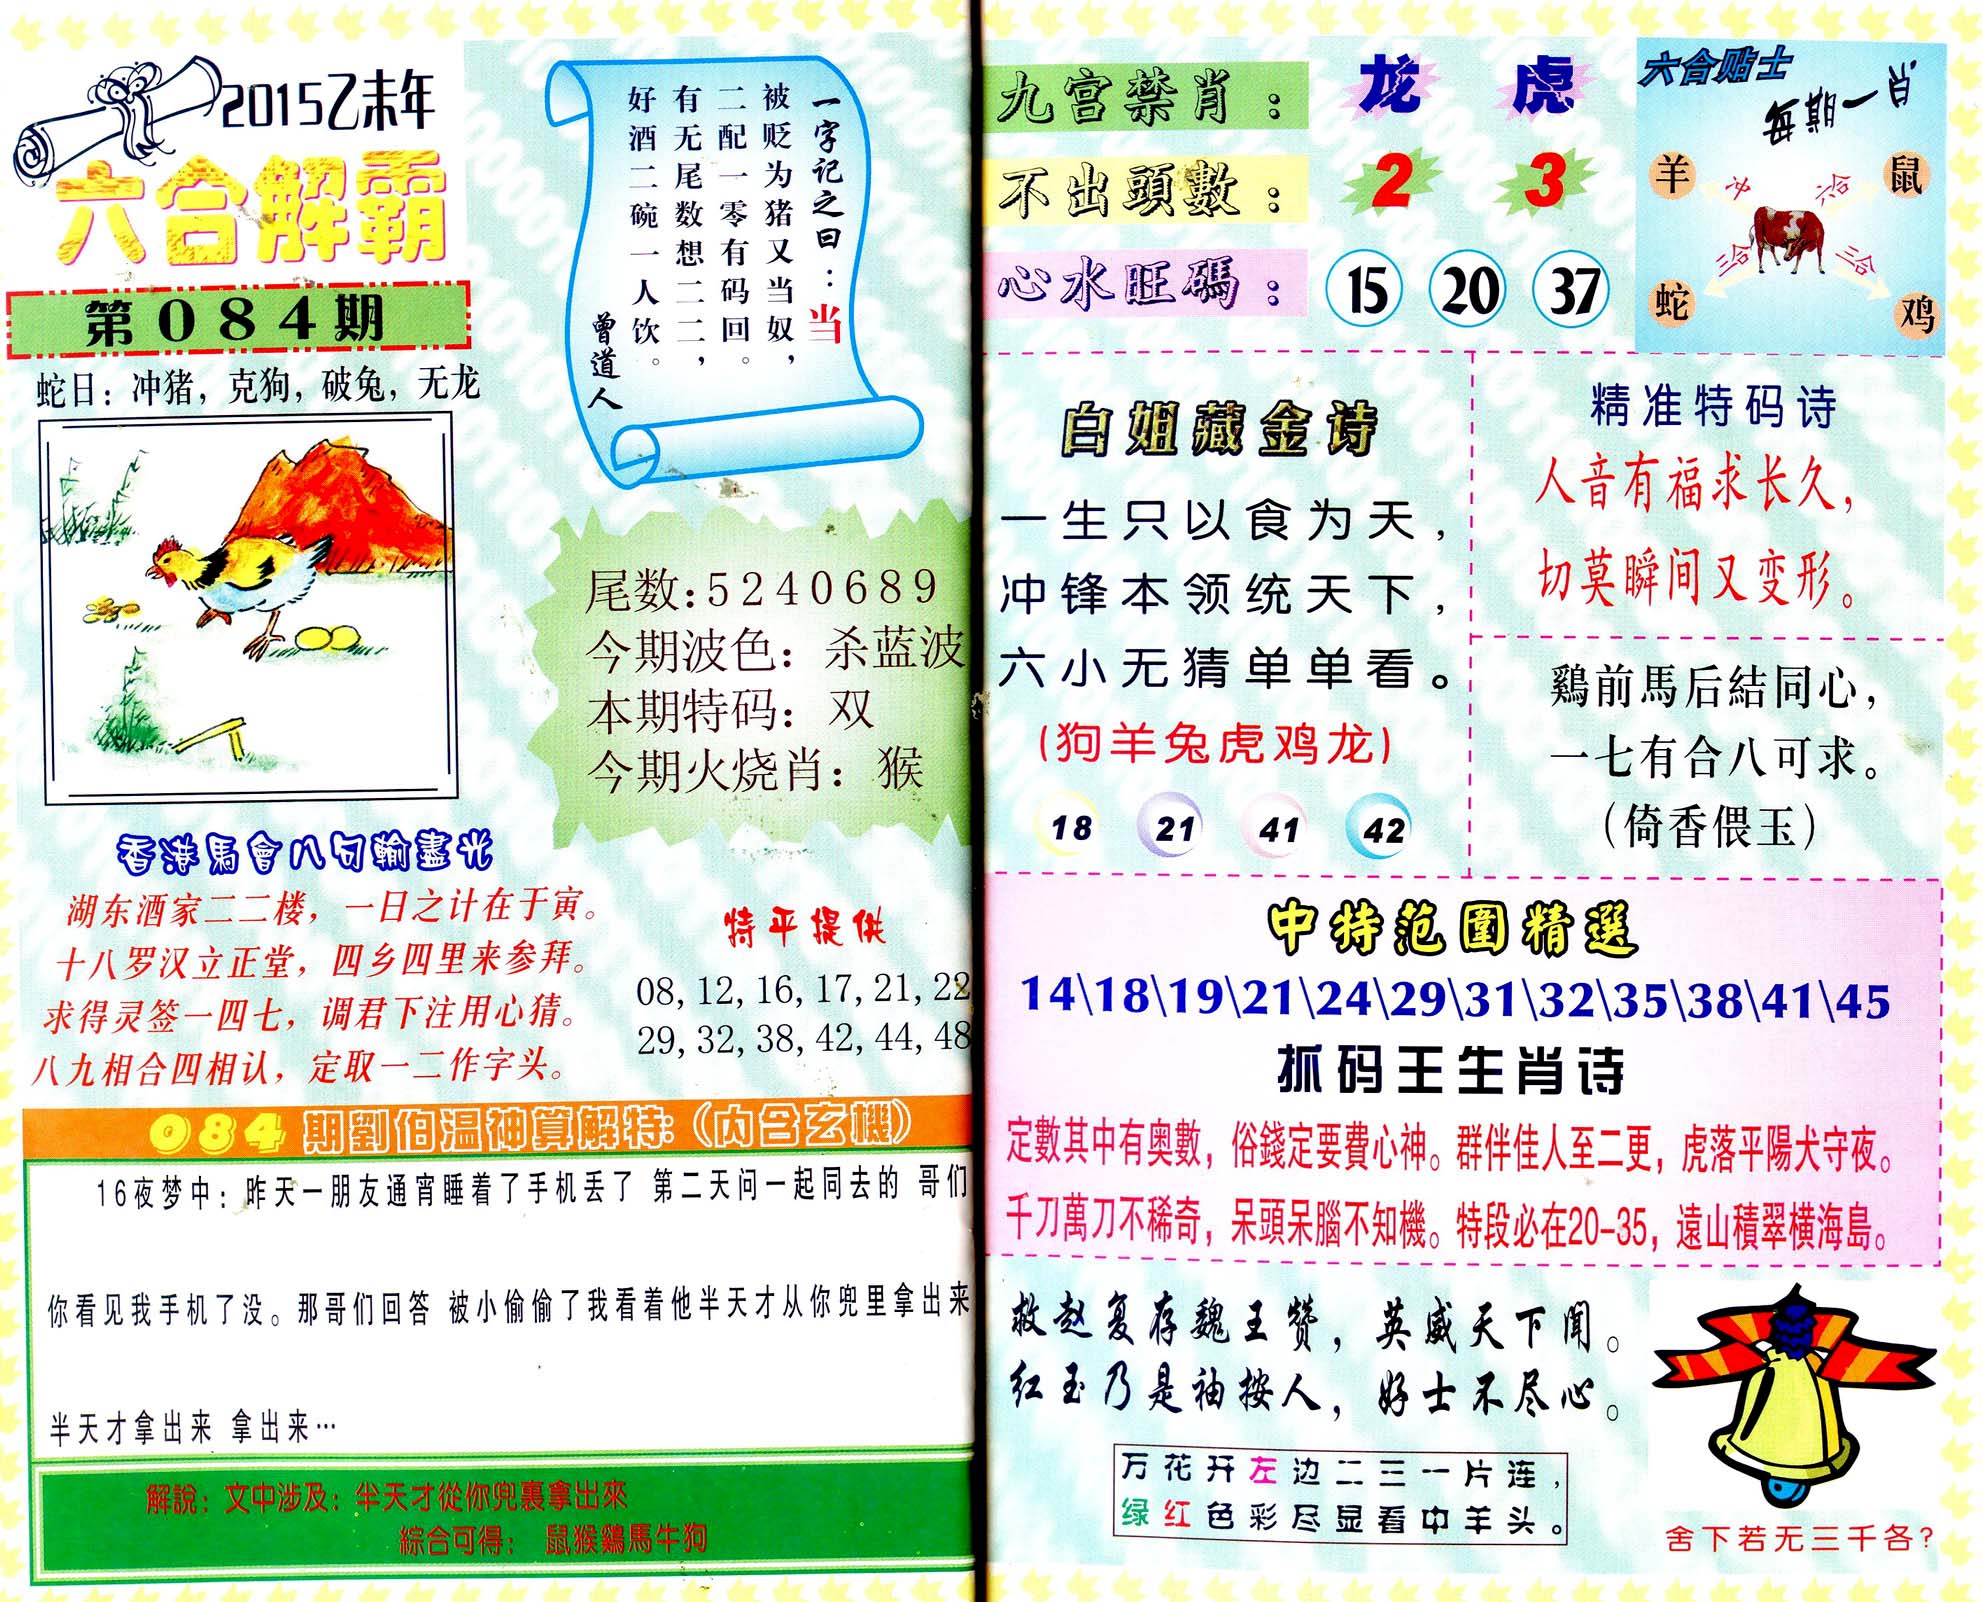 2015乙未年
六合解霸
第084期
蛇日：冲猪，克狗，破兔，无龙
一字记之曰：当
被贬为猪又当奴，
二配一零有码回。
有无尾数想二二，
好酒二碗一人饮。
曾道人
尾数:5240689
今期波色：杀蓝波
本期特码：双
今期火烧肖：猴
香港馬會八句輸盡光
湖东酒家二二楼，一日之计在于寅。
十八罗汉立正堂，四乡四里来参拜。
求得灵签一四七，调君下注用心猜。
八九相合四相认，定取一二作字头。
特平提供
08,12,16,17,21,22
29,32,38,42,44,48
084期劉伯温神算解特:（内含玄機）
16夜梦中：昨天一朋友通宵睡着了手机丢了 第二天问一起同去的 哥们
你看见我手机了没。那哥们回答 被小偷偷了我看着他半天才从你兜里拿出来
半天才拿出来 拿出来…
解說：文中涉及：半天才從你兜裏拿出來
綜合可得： 鼠猴鷄馬牛狗
九宫禁肖： 龙 虎
不出頭數： 2 3
心水旺碼： 15 20 37
六合贴士
每期一肖
羊 冲 六合 鼠
蛇 三合 三合 鸡
白姐藏金诗
一生只以食为天，
冲锋本领统天下，
六小无猜单单看。
(狗羊兔虎鸡龙)
18 21 41 42
精准特码诗
人音有福求长久，
切莫瞬间又变形。
鷄前馬后結同心，
一七有合八可求。
（倚香偎玉）
中特范圍精選
14\18\19\21\24\29\31\32\35\38\41\45
抓码王生肖诗
定數其中有奥數，俗錢定要費心神。群伴佳人至二更，虎落平陽犬守夜。
千刀萬刀不稀奇，呆頭呆腦不知機。特段必在20-35，遠山積翠横海島。
救赵复存魏王赞，英威天下闻。
红玉乃是袖按人，好士不尽心。
万花开左边二三一片连，
绿红色彩尽显看中羊头。
舍下若无三千各？